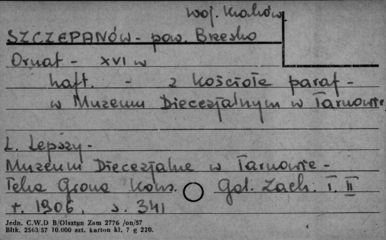 woj. Kraków
SZCZEPANÓW - pow. Brzesko
Ornat - XVI w
haft. - z kościoła paraf -
w Muzeum Diecezjalnym w Tarnowie
L. Lepszy -
Muzeum Diecezjalne w Tarnowie -
Teka Grona Kons. Gal. Zach. I. II
r. 1906. s. 341
Jedn. C.W.D B/Olsztyn Zam 2776 /on/57
Bltk. 2563/57 10.000 szt. karton kl. 7 g 220.